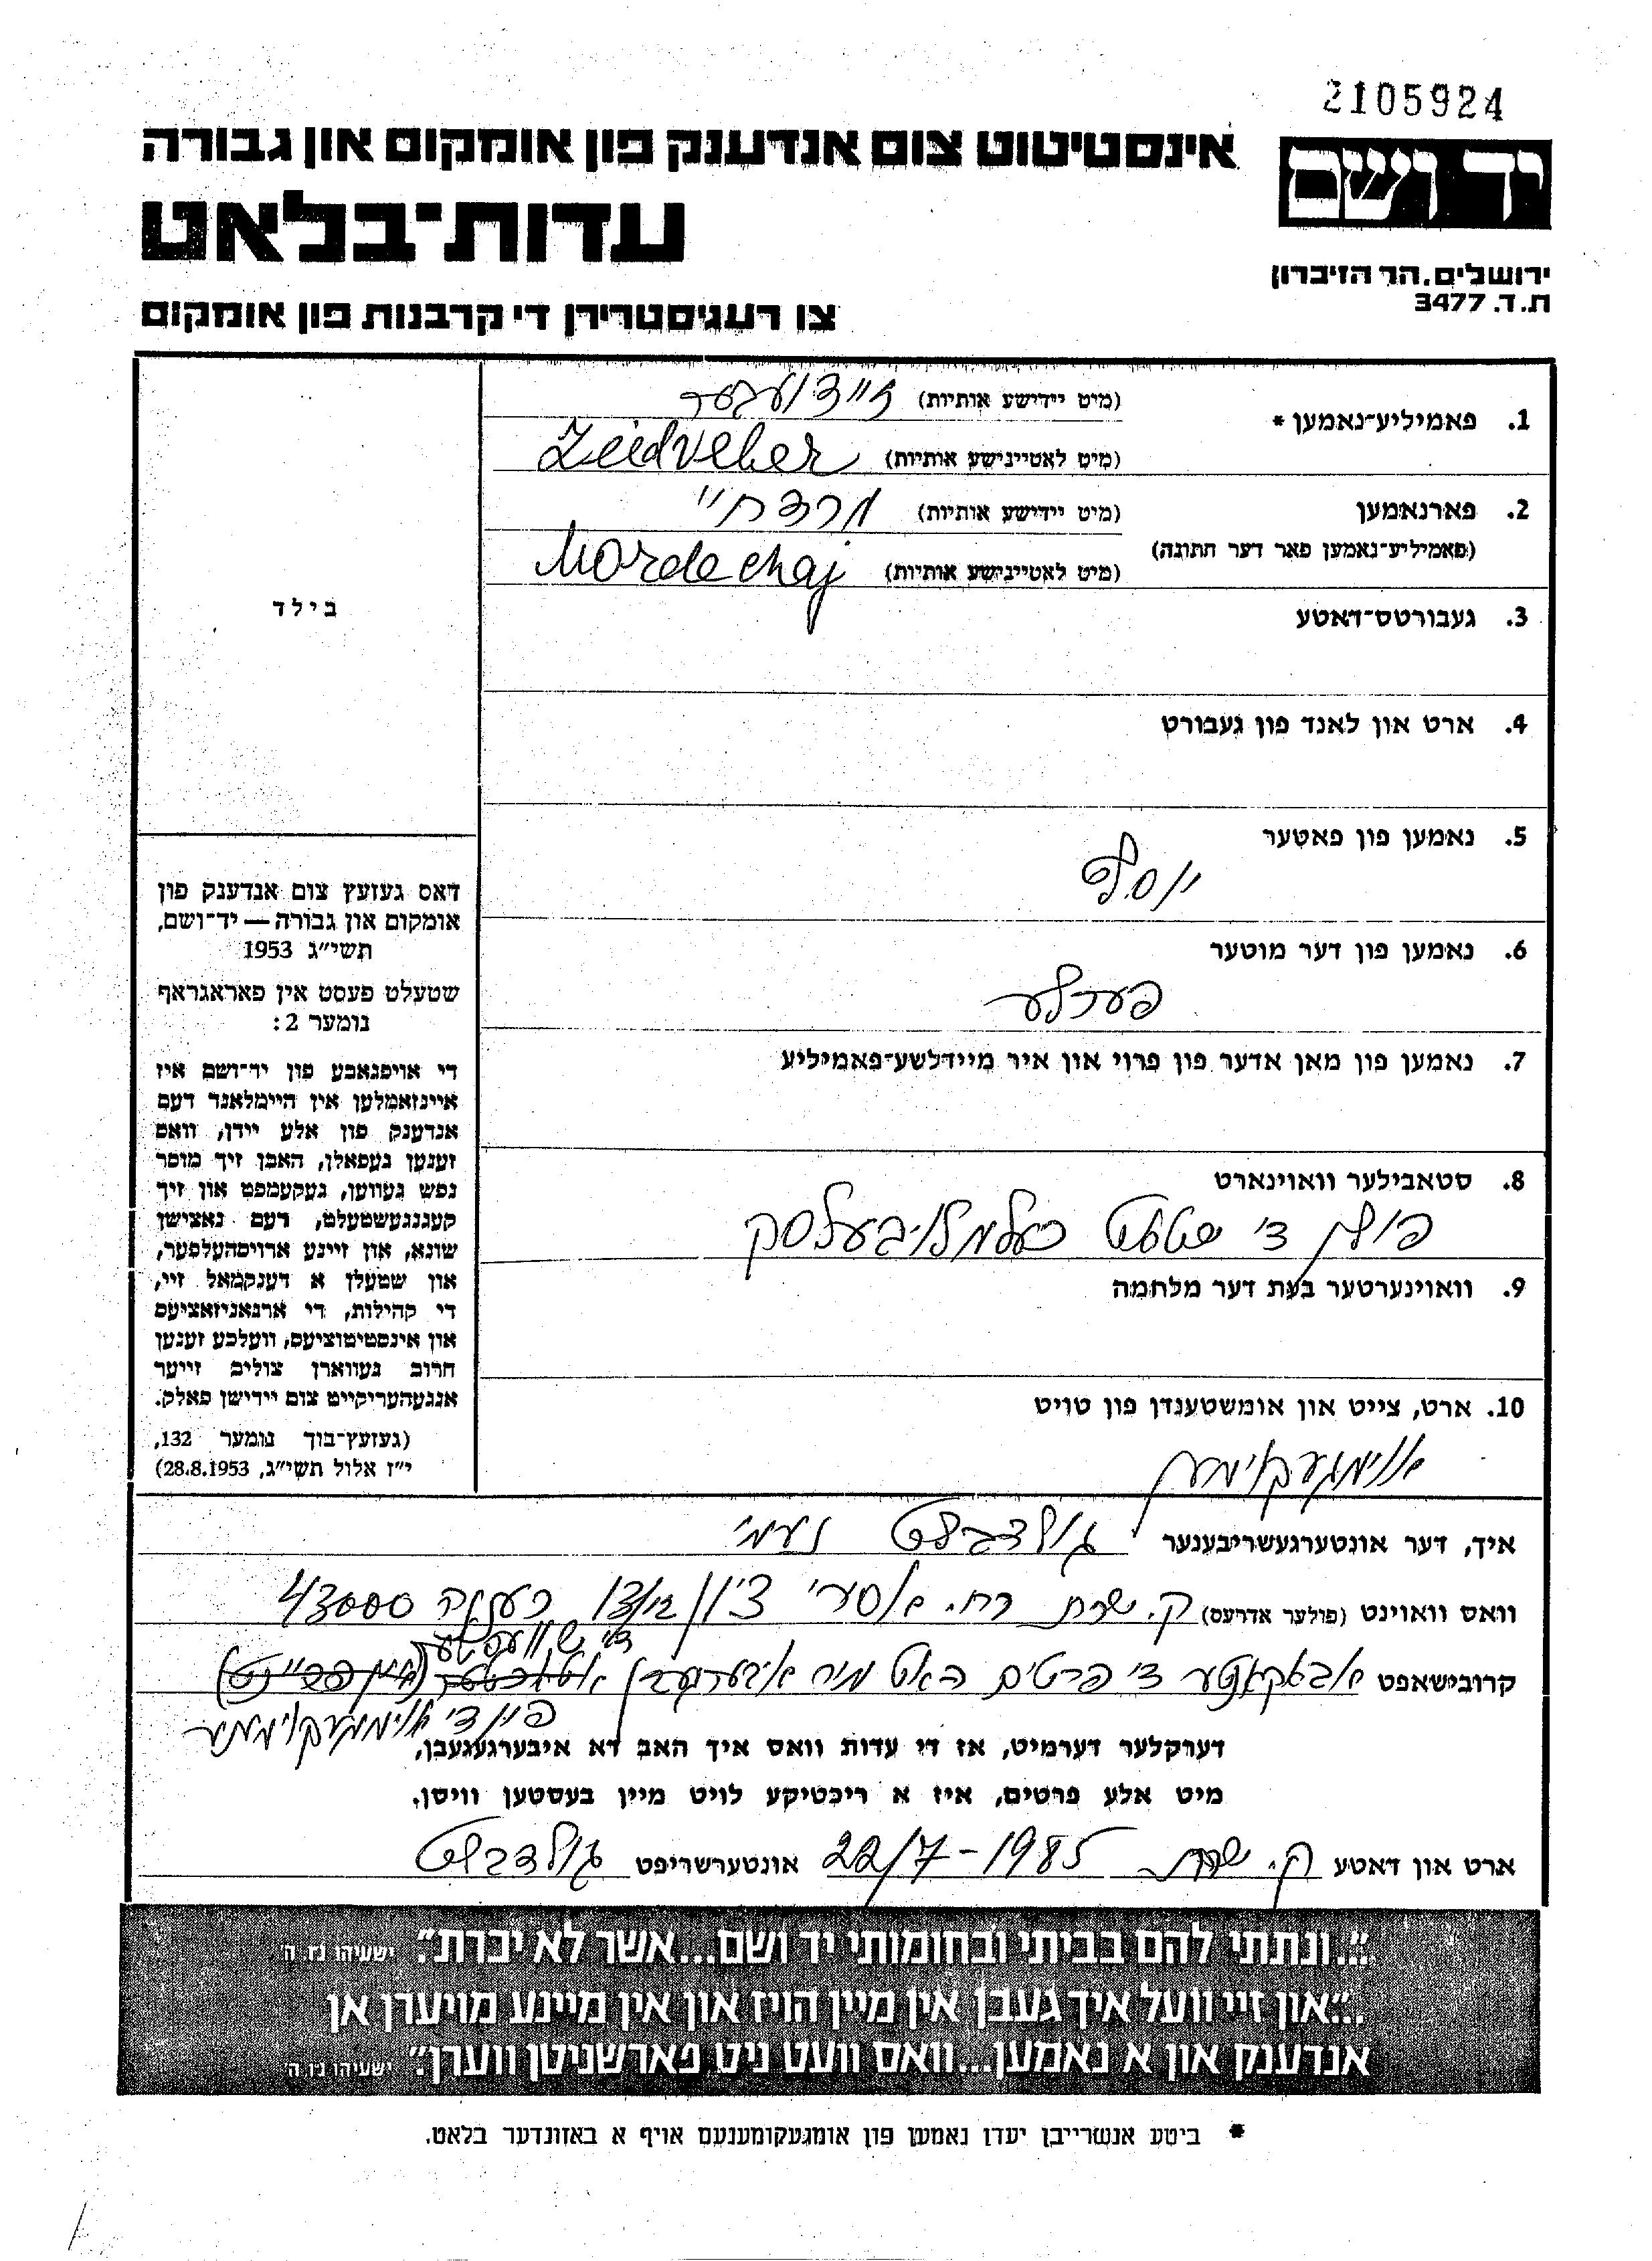 2105924
יד ושם
אינסטיטוט צום אנדענק פון אומקום און גבורה
עדות־בלאט
צו רעגיסטרירן די קרבנות פון אומקום
ירושלים. הר הזיכרון
ת.ד. 3477
1. פאמיליע־נאמען * (מיט יידישע אותיות) זיידוועבער
(מיט לאטיינישע אותיות) Zeidveber
2. פארנאמען (מיט יידישע אותיות) מרדכי
(פאמיליע־נאמען פאר דער חתונה) (מיט לאטיינישע אותיות) Mordechaj
3. געבורטס־דאטע
4. ארט און לאנד פון געבורט
5. נאמען פון פאטער
יוסף
6. נאמען פון דער מוטער
פערלע
7. נאמען פון מאן אדער פון פרוי און איר מיידלשע־פאמיליע
8. סטאבילער וואוינארט
פוילן די שטאט
9. וואוינערטער בעת דער מלחמה
10. ארט, צייט און אומשטענדן פון טויט
אומגעקומען
בילד
דאס געזעץ צום אנדענק פון
אומקום און גבורה — יד־ושם,
תשי״ג 1953
שטעלט פעסט אין פאראגראף
נומער 2:
די אויפגאבע פון יד־ושם איז
איינזאמלען אין היימלאנד דעם
אנדענק פון אלע יידן, וואס
זענען געפאלן, האבן זיך מוסר
נפש געווען, געקעמפט און זיך
קעגנגעשטעלט, דעם נאצישן
שונא, און זיינע ארויסהעלפער,
און שטעלן א דענקמאל זיי,
די קהילות, די ארגאניזאציעס
און אינסטיטוציעס, וועלכע זענען
חרוב געווארן צוליב זייער
אנגעהעריקייט צום יידישן פאלק.
(געזעץ־בוך נומער 132,
י״ז אלול תשי״ג, 28.8.1953)
איך, דער אונטערגעשריבענער גולדבלט נעמי
וואס וואוינט (פולער אדרעס) ק. שרת רח. אסירי ציון 13/12 רעננה 43000
קרובישאפט באקאנטע די פרטים האט מיר איבערגעגעבן
די שוועסטער
פון די אומגעקומענער
דערקלער דערמיט, אז די עדות וואס איך האב דא איבערגעגעבן,
מיט אלע פרטים, איז א ריכטיקע לויט מיין בעסטען וויסן.
ארט און דאטע ק. שרת 22/7-1985 אונטערשריפט גולדבלט
"...ונתתי להם בביתי ובחומותי יד ושם...אשר לא יכרת". ישעיהו נז, ה
..."און זיי וועל איך געבן אין מיין הויז און אין מיינע מויערן אן
אנדענק און א נאמען...וואס וועט ניט פארשניטן ווערן". ישעיהו נז, ה
* ביטע אנשרייבן יעדן נאמען פון אומגעקומענעם אויף א באזונדער בלאט.